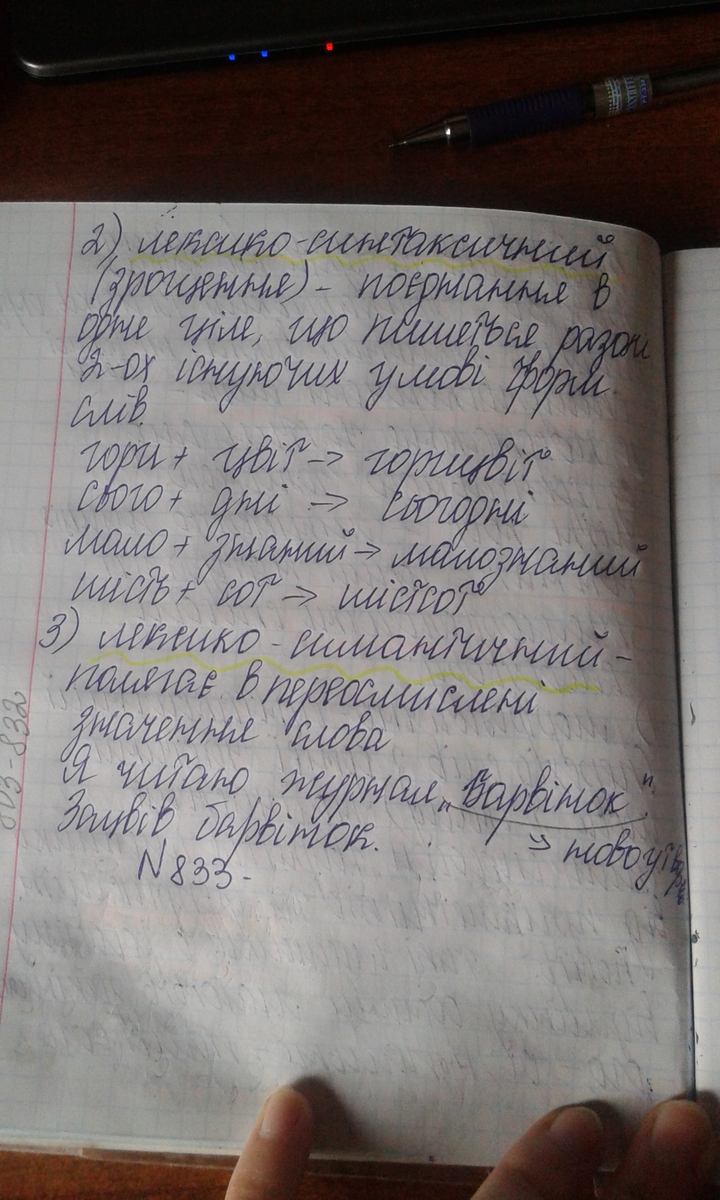 2) лексико-синтаксичний
(зрощення) - поєднання в
одне ціле, що пишеться разом
2-ох існуючих у мові форм
слів.
гори + цвіт -> горицвіт
сього + дні -> сьогодні
мало + знаний -> малознаний
шість + сот -> шістсот
3) лексико-симантичний -
полягає в переосмислені
значення слова
Я читаю журнал „Барвінок".
Зацвів барвінок.
-> новоутворене
N833-
803-832